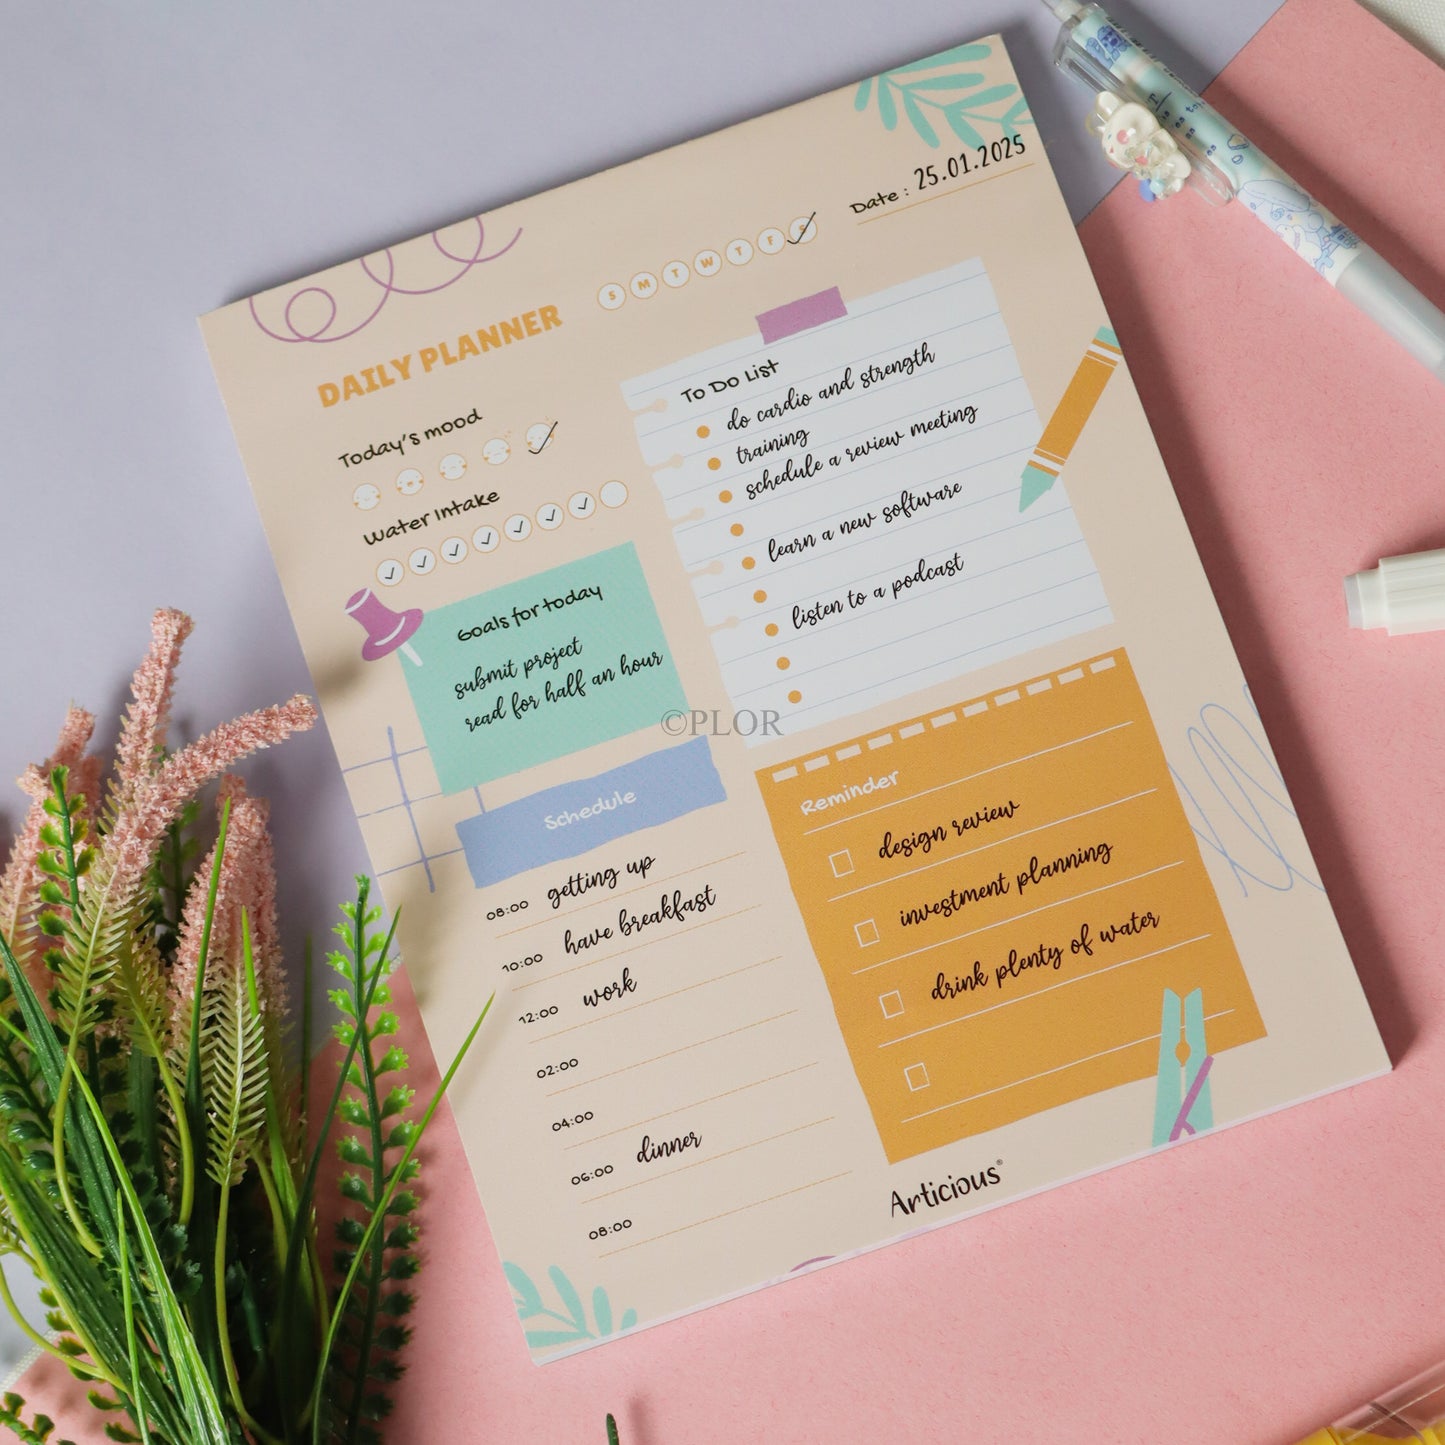 Date : 25.01.2025
S M T W T F S
DAILY PLANNER
Today's mood
Water Intake
Goals for today
submit project
read for half an hour
To Do List
do cardio and strength
training
schedule a review meeting
learn a new software
listen to a podcast
©PLOR
Schedule
08:00 getting up
10:00 have breakfast
12:00 work
02:00
04:00
06:00 dinner
08:00
Reminder
design review
investment planning
drink plenty of water
Articious®